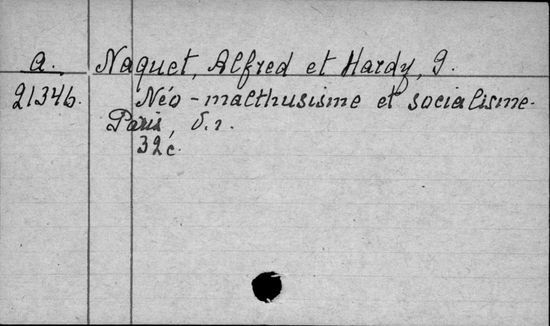 a. Naquet, Alfred et Hardy, G.
21346. Néo-malthusisme et socialisme.
Paris, s.d.
32 c.